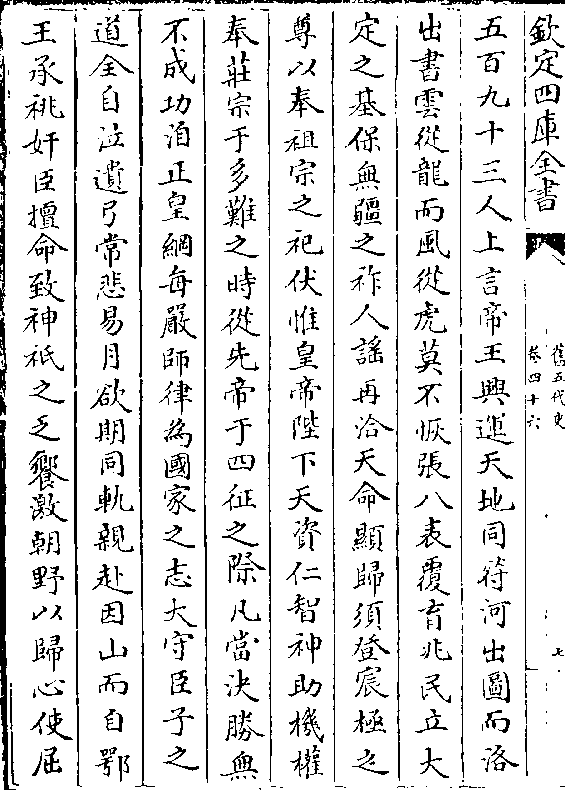 欽定四庫全書
舊五代史
卷四十六
七
五百九十三人上言帝王興運天地同符河出圖而洛
出書雲從龍而風從虎莫不恢張八表覆育兆民立大
定之基保無疆之祚人謠再洽天命顯歸須登宸極之
尊以奉祖宗之祀伏惟皇帝陛下天資仁智神助機權
奉莊宗于多難之時從先帝于四征之際凡當決勝無
不成功洎正皇綱每嚴師律為國家之志大守臣子之
道全自泣遺弓常悲易月欲期同軌親赴因山而自鄂
王承祧奸臣擅命致神祇之乏饗激朝野以歸心使屈